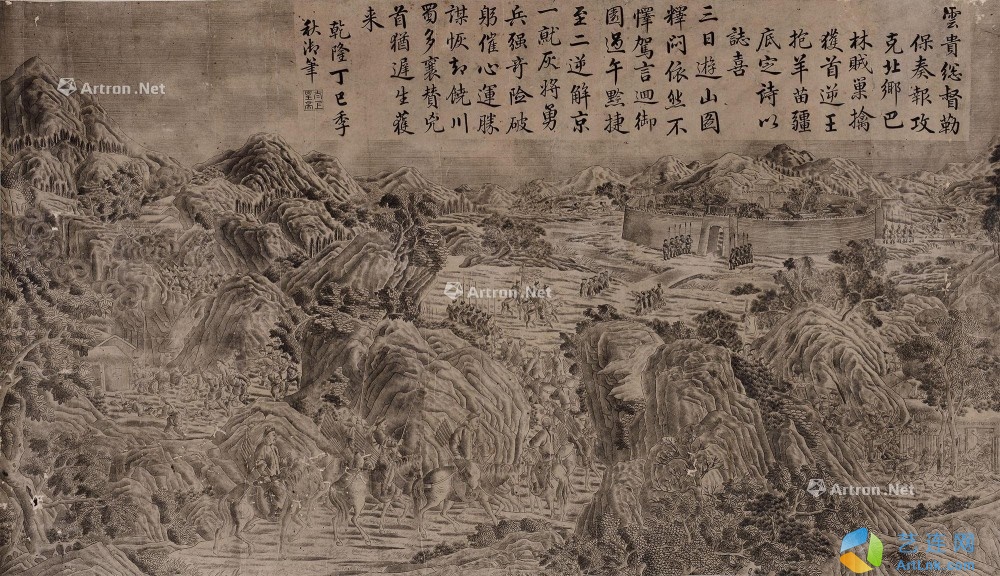 雲貴緫督勒
保奏報攻
克北鄉巴
林賊巢擒
獲首逆王
抱羊苗疆
底定诗以
誌喜
三日遊山图
釋闷依然不
懌駕言迴御
園過午黙捷
至二逆解京
一就灰将勇
兵强奇险破
躬催心運勝
謀恢却饒川
蜀多襄賛兇
首猶遲生獲
来
乾隆丁巳季
秋御筆
Artron.Net
Artron.Net
Artron.Net
艺连网
ArtLnw.com